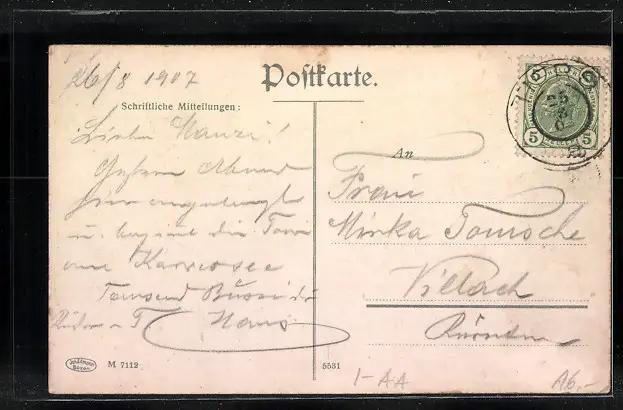 26/8 1907
Postkarte.
Schriftliche Mitteilungen:
Liebe Manzi!
Gestern Abend
hier angelangt
u. die
am Karersee
Tausend Bussi
Hans
An
Frau
Minka Tomsche
Villach
Kärnten
5 5
25
M 7112
5531
I-AA
A6,-